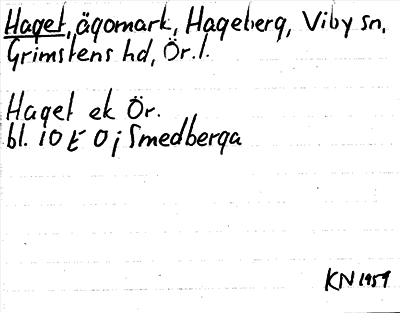 Haget, ägomark, Hageberg, Viby sn,
Grimstens hd, Ör. l.
Haget ek Ör.
bl. 10 E 0 j Smedberga
KN 1959